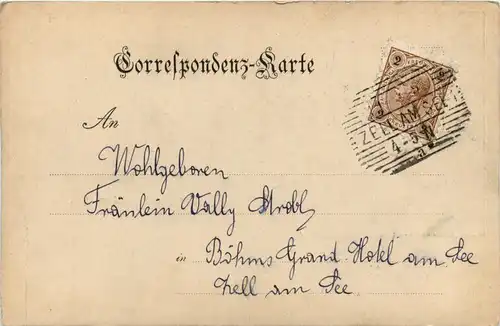 Correspondenz-Karte
2 2 2
ZELL AM SEE
4-5
a
An
Wohlgeboren
Fräulein Vally Strobl
in Böhms Grand Hotel am See
Zell am See